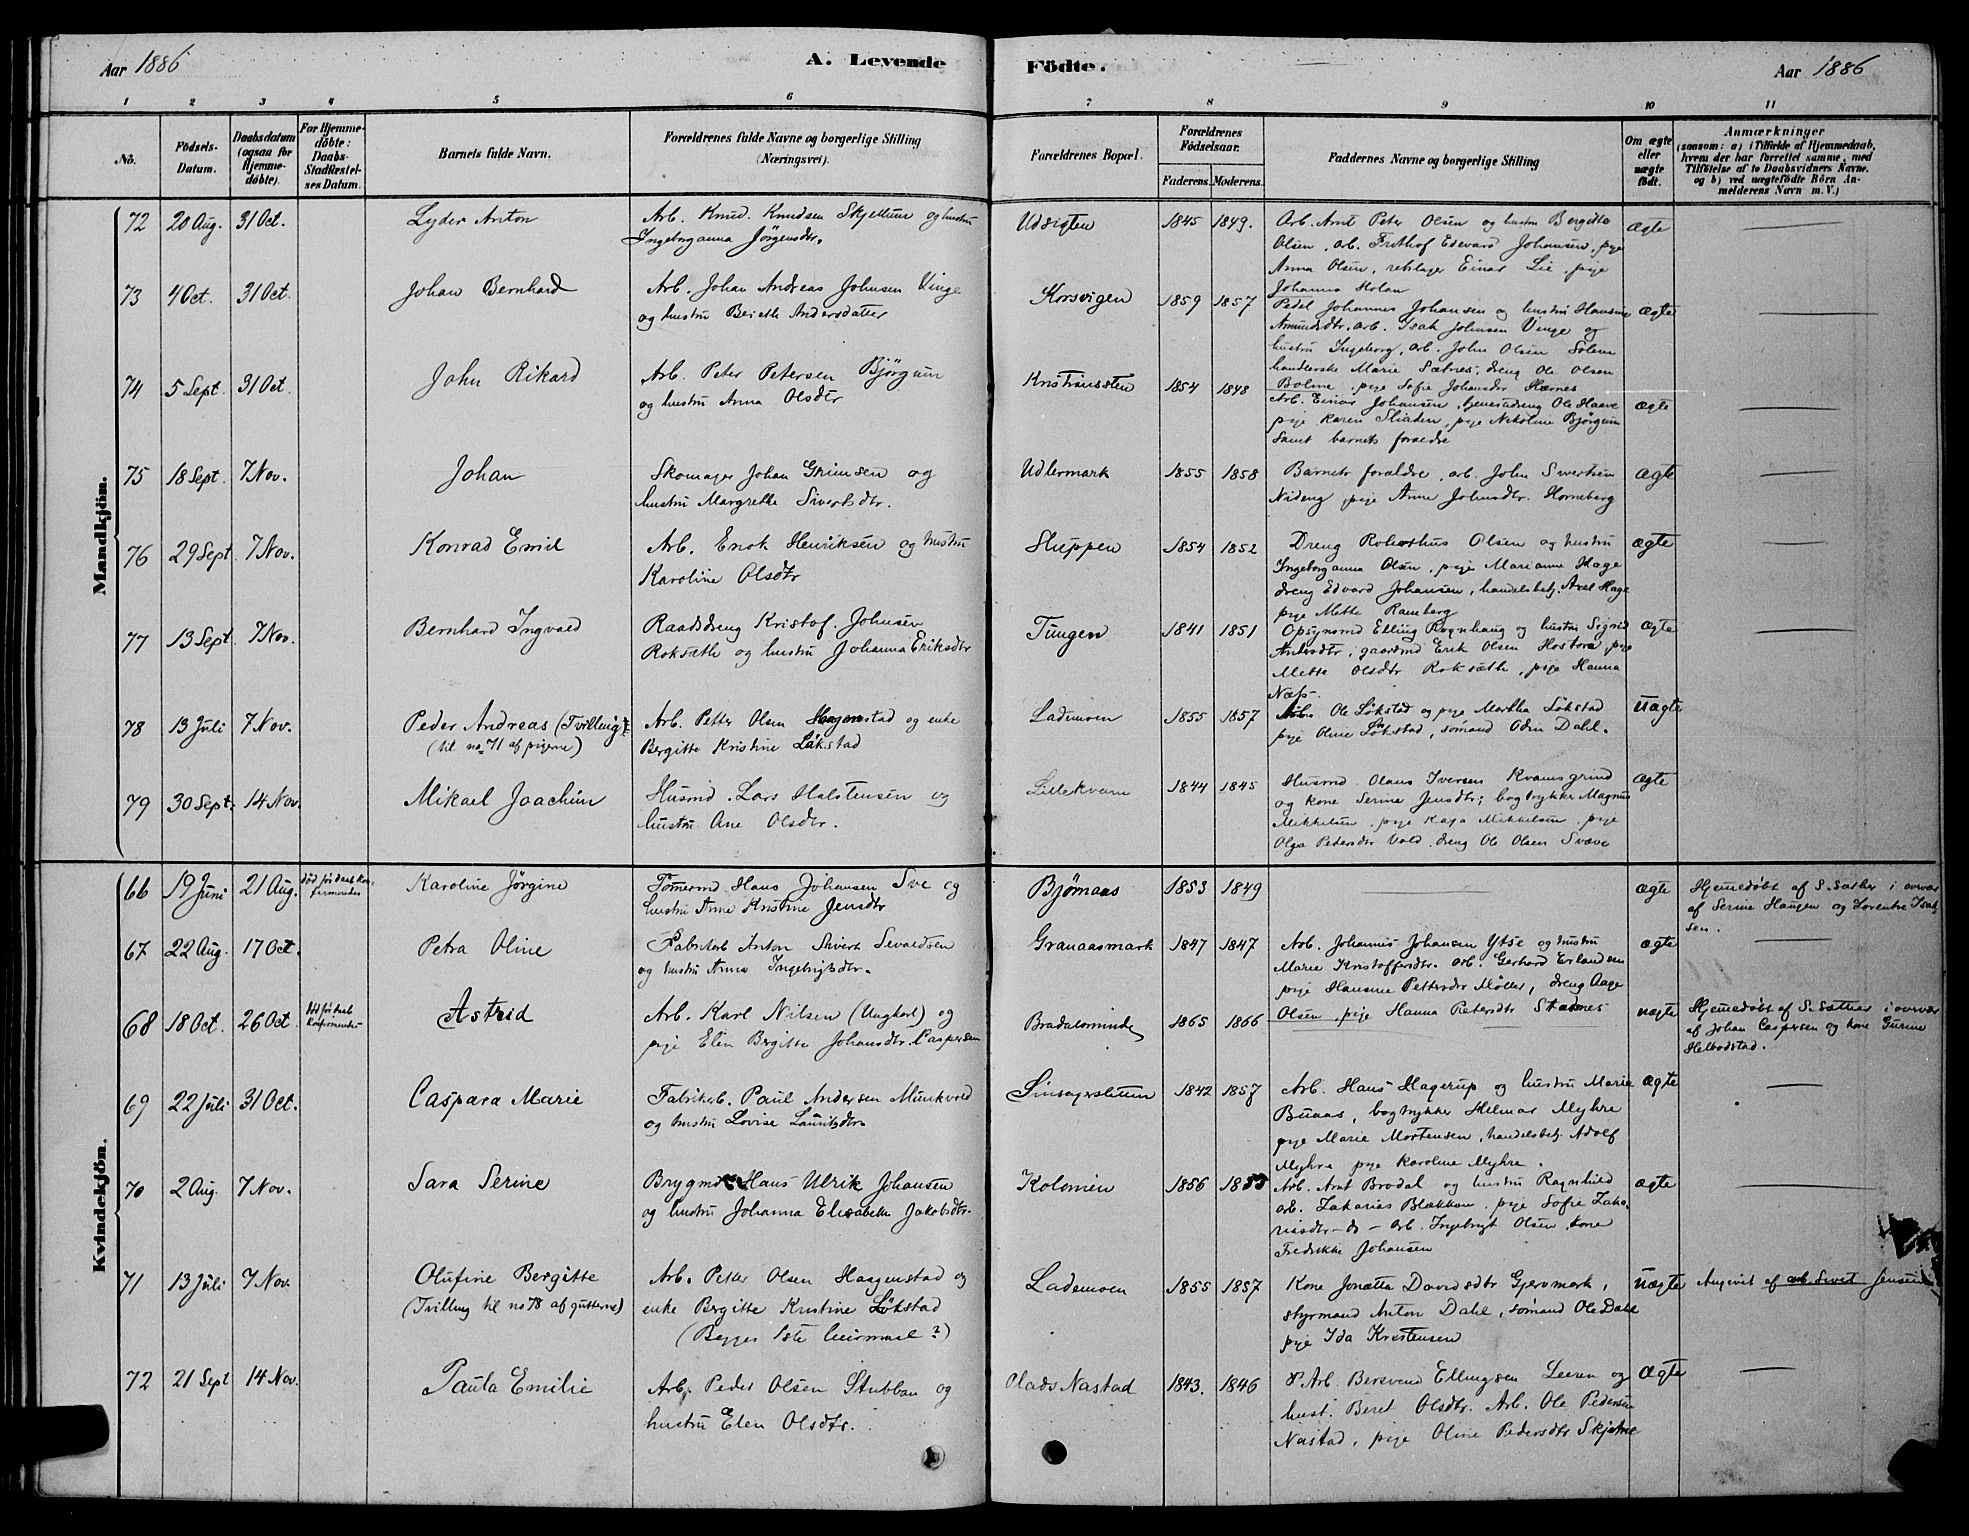 Aar 1886
A. Levende
Födte.
Aar 1886
1 2 3 4 5 6 7 8 9 10 11
No.
Födsels-Datum.
Daabsdatum (ogsaa for Hjemme-döbte).
For Hjemme-döbte: Daabs-Stadfæstel-ses Datum.
Barnets fulde Navn.
Forældrenes fulde Navne og borgerlige Stilling (Næringsvei).
Forældrenes Bopæl.
Forældrenes Födselsaar.
Faderens. Moderens.
Faddernes Navne og borgerlige Stilling
Om ægte eller uægte födt.
Anmærkninger
(saasom: a) i Tilfælde af Hjemmedaab, hvem der har forrettet samme, med Tilföielse af to Daabsvidners Navne. og b) ved uægtefödte Börn An-melderens Navn m. V.)
Mandkjön.
72 20 Aug. 31 Oct. Lyder Anton
Arb. Knud Knudsen Skjetlum og hustru
Ingeborganna Jörgensdtr.
Udsigten 1845 1849.
Arb. Arnt Peter Olsen og hustru Bergitte
Olsen, arb. Frithof Edevard Johansen, pige
Anna Olsen, rebslager Einar Lie, pige
Johanna Holan
ægte
73 4 Oct. 31 Oct. Johan Bernhard
Arb. Johan Andreas Johnsen Vinge
og hustru Bereth Andersdatter
Korsvigen 1859 1857
Pedel Johannes Johansen og hustru Hansine
Amundsdtr, arb. Isak Johnsen Vinge og
hustru Ingeborg, arb. John Olsen Solem
handlerske Marie Sætnes, dreng Ole Olsen
Bolme, pige Sofie Johansdr Hærnes
ægte
74 5 Sept. 31 Oct. John Rikard
Arb. Peter Petersen Bjørgum
og hustru Anna Olsdtr
Kristiansten 1854 1848
Arb. Einar Johansen, tjenestedreng Ole Haave
pige Karen Sliaden, pige Nikoline Bjørgum
samt barnets forældre
ægte
75 18 Sept. 7 Nov. Johan
Skomager Johan Grimsen og
hustru Margrethe Sivertsdtr.
Udlermark 1855 1858
Barnets forældre, arb. John Sivertsen
Nideng, pige Anne Johnsdtr. Horneberg
ægte
76 29 Sept 7 Nov. Konrad Emil
Arb. Enok Henriksen og hustru
Karoline Olsdtr
Sluppen 1854 1852
Dreng Olsen og hustru
Ingeborganna Olsen, pige Marianne Hage
dreng Edvard Johansen, handelsbetj. Axel Hage
pige Mette Ramberg
ægte
77 13 Sept 7 Nov. Bernhard Ingvald
Raadsdreng Kristof. Johnsen
Roksæth og hustru Johanna Eriksdtr
Tungen 1841 1851
Opsynsmd Elling Rognhaug og hustru Sigrid
Andersdtr, gaardmd Erik Olsen, pige
Mette Olsdtr Roksæth, pige Hanna
Næss.
ægte
78 13 Juli 7 Nov. Peder Andreas (Tvilling
(til no 71 af pigerne)
Arb. Petter Olsen Haagenstad og enke
Bergitte Kristine Løkstad
Lademoen 1855 1857
Arb. Ole Løkstad og pige Martha Løkstad
pige Oline Løkstad, sømand Odin Dahl.
uægte
79 30 Sept. 14 Nov. Mikael Joachim
Husmd. Lars Halstensen og
hustru Ane Olsdtr.
Lillekvam 1844 1845
Husmd Olaus Iversen Kvamsgrind
og kone Serine Jensdtr, bogtrykker Magnus
Mikkelsen, pige Kaja Mikkelsen, pige
Olga Petersdtr Vold, dreng Ole Olsen Svæve
ægte
Kvindekjön.
66 19 Juni 21 Aug. død før daab kon-
firmeredes
Karoline Jørgine
Tømermd Hans Johansen Sve og
hustru Anne Kristine Jensdtr
Bjørnaas 1853 1849
ægte
Hjemmedøbt af S. Sæther i overvær
af Serine Haugen og Lorentse Isak-
sen.
67 22 Aug. 17 Oct. Petra Oline
Fabrikarb Anton Sivert Sivaldsen
og hustru Anna Ingebrigtsdtr.
Granaasmark 1847 1847
Arb. Johannes Johansen Ytse og hustru
Marie Kristoffersdtr. arb. Gerhard Erlandsen
pige Hansine Pettersdr Møller, dreng Aage
Olsen, pige Hanna Petersdtr Stadsnes
ægte
68 18 Oct. 26 Oct. død før daab
konfirmeredes
Astrid
Arb. Karl Nilsen (Ungkarl) og
pige Elen Bergitte Johansdtr. Caspersen
Bradalsminde 1865 1866
uægte
Hjemmedøbt af S. Sæther i overvær
af Johan Caspersen og kone Gurine
Helbostad.
69 22 Juli 31 Oct. Caspara Marie
Fabrikarb. Paul Andersen Munkvold
og hustru Lovise Lauritsdtr.
1842 1857
Arb. Hans Hagerup og hustru Marie
Buaas, bogtrykker Helmar Myhre
pige Marie Mortensen, handelsbetj. Adolf
Myhre pige Karoline Myhre.
ægte
70 2 Aug. 7 Nov. Sara Serine
Brygmd Hans Ulrik Johansen
og hustru Johanna Elisabeth Jakobsdtr.
Kolonien 1856 1855
Arb. Arnt Brodal og hustru Ragnhild
arb. Zakarias Blækken, pige Sofie Zaka-
riasdtr - do - arb. Ingebrigt Olsen, kone
Fredrikke Johansen
ægte
71 13 Juli 7 Nov. Olufine Bergitte
(Tvilling til no 78 af gutterne)
Arb. Petter Olsen Haagenstad og
enke Bergitte Kristine Løkstad
(Begges 1ste leiermaal?)
Lademoen 1855 1857
Kone Jonetta Davidsdtr Gjervmark,
styrmand Anton Dahl, sømand Ole Dahl
pige Ida Kristensen
uægte
Angivet af arb. Sivert Jensen
72 21 Sept 14 Nov. Paula Emilie
Arb. Peder Olsen Stubban og
hustru Elen Olsdtr.
Olads Nastad 1843. 1846
Arb. Bersvend Ellingsen Leren og
hust. Beret Olsdtr. Arb. Ole Pedersen
Nastad, pige Oline Pedersdtr Skjetne
Ægte